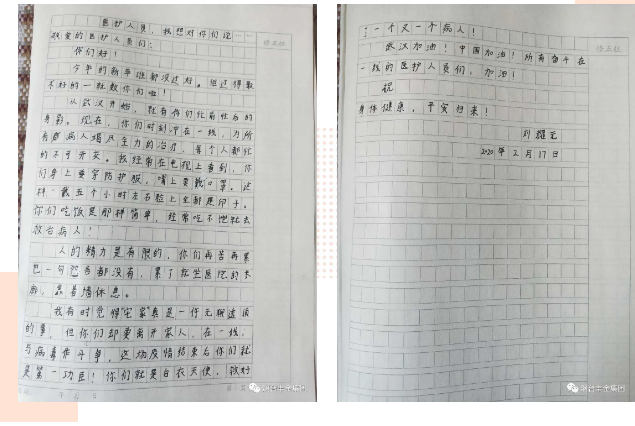 医护人员，我想对你们说……
敬爱的医护人员们：
你们好！
今年的新年谁都没过好。但过得最
不好的一批数你们啦！
从武汉开始，就有你们忙前忙后的
身影。现在，你们时刻冲在一线，为所
有病人竭尽全力的治疗，每个人都忙
的不可开交。我经常在电视上看到，你
们身上要穿防护服，嘴上要戴口罩。这
样一戴五个小时左右脸上全都是印子。
你们吃饭是那样简单，经常吃不饱就去
救治病人！
人的精力是有限的，你们再苦再累
也一句怨言都没有，累了就坐医院的木
椅，靠着墙休息。
我有时觉得“宅家”真是一件无聊透顶
的事，但你们却要离开家人，在一线，
与病毒作斗争。这场疫情结束后你们就
是第一功臣！你们就是白衣天使，救好
了一个又一个病人！
武汉加油！中国加油！所有奋斗在
一线的医护人员们，加油！
祝
身体健康，平安归来！
刘
2020年2月17日